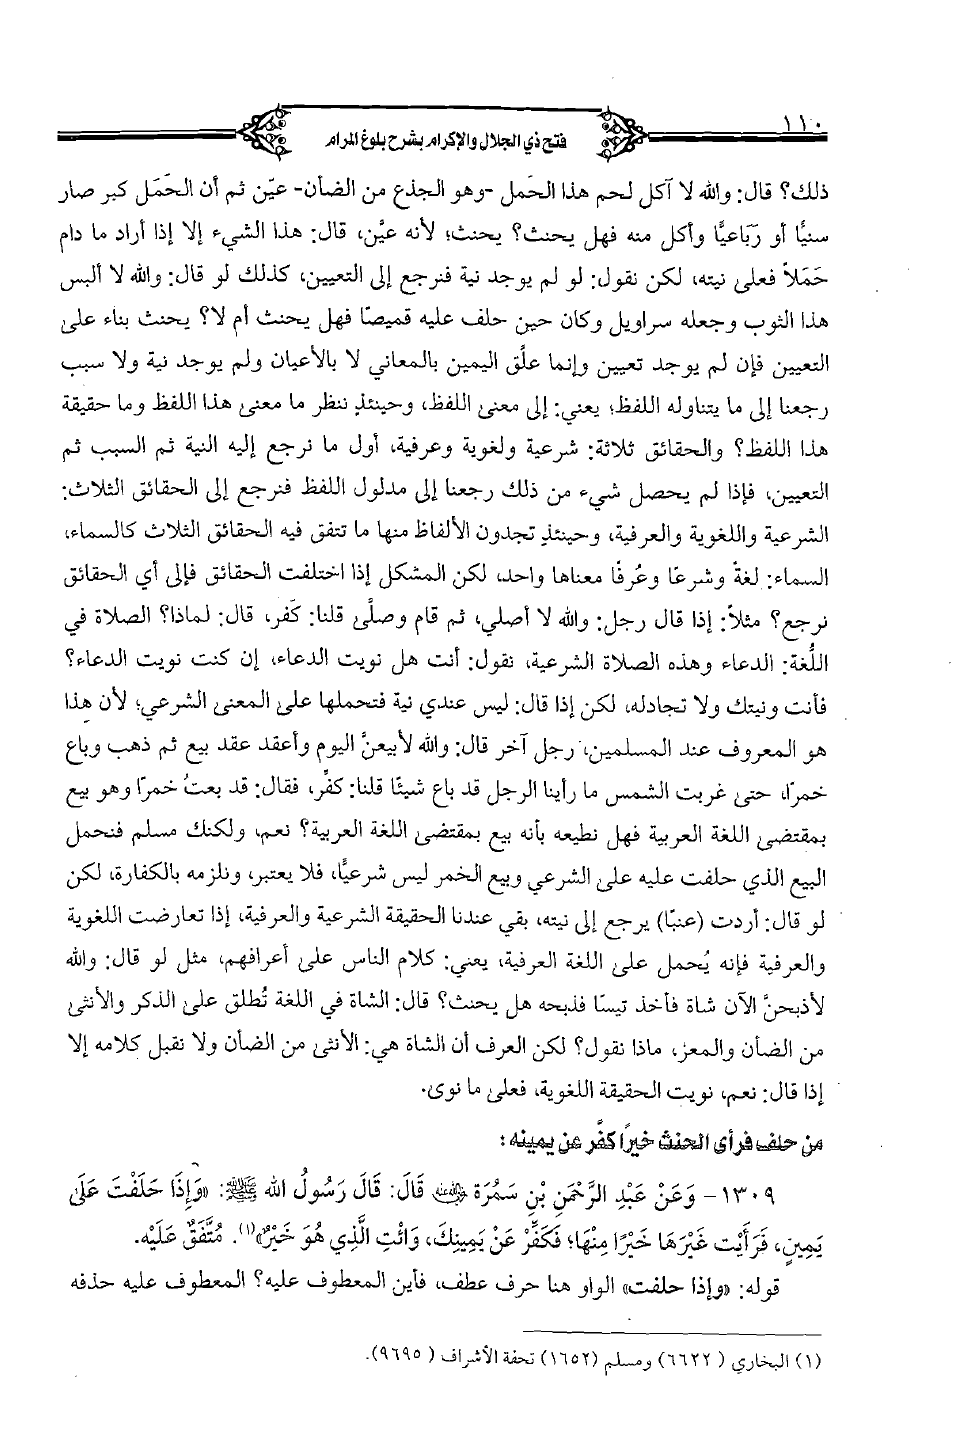 ١١٠
فتح ذي الجلال والإكرام بشرح بلوغ المرام
ذلك؟ قال: والله لا آكل لحم هذا الحَمل -وهو الجذع من الضأن- عيّن ثم أن الحَمَل كبر صار
سنيًّا أو رَبَاعيًّا وأكل منه فهل يحنث؟ يحنث؛ لأنه عيَّن، قال: هذا الشيء إلا إذا أراد ما دام
حَمَلاً فعلى نيته، لكن نقول: لو لم يوجد نية فنرجع إلى التعيين، كذلك لو قال: والله لا ألبس
هذا الثوب وجعله سراويل وكان حين حلف عليه قميصًا فهل يحنث أم لا؟ يحنث بناء على
التعيين فإن لم يوجد تعيين وإنما علَّق اليمين بالمعاني لا بالأعيان ولم يوجد نية ولا سبب
رجعنا إلى ما يتناوله اللفظ؛ يعني: إلى معنى اللفظ، وحينئذٍ ننظر ما معنى هذا اللفظ وما حقيقة
هذا اللفظ؟ والحقائق ثلاثة: شرعية ولغوية وعرفية، أول ما نرجع إليه النية ثم السبب ثم
التعيين، فإذا لم يحصل شيء من ذلك رجعنا إلى مدلول اللفظ فنرجع إلى الحقائق الثلاث:
الشرعية واللغوية والعرفية، وحينئذٍ تجدون الألفاظ منها ما تتفق فيه الحقائق الثلاث كالسماء،
السماء: لغةً وشرعًا وعُرفًا معناها واحد، لكن المشكل إذا اختلفت الحقائق فإلى أي الحقائق
نرجع؟ مثلاً: إذا قال رجل: والله لا أصلي، ثم قام وصلَّى قلنا: كَفر، قال: لماذا؟ الصلاة في
اللُّغة: الدعاء وهذه الصلاة الشرعية، نقول: أنت هل نويت الدعاء، إن كنت نويت الدعاء؟
فأنت ونيتك ولا تجادله، لكن إذا قال: ليس عندي نية فتحملها على المعنى الشرعي؛ لأن هذا
هو المعروف عند المسلمين، رجل آخر قال: والله لأبيعنَّ اليوم وأعقد عقد بيع ثم ذهب وباع
خمرًا، حتى غربت الشمس ما رأينا الرجل قد باع شيئًا قلنا: كفِّر، فقال: قد بعتُ خمرًا وهو بيع
بمقتضى اللغة العربية فهل نطيعه بأنه بيع بمقتضى اللغة العربية؟ نعم، ولكنك مسلم فنحمل
البيع الذي حلفت عليه على الشرعي وبيع الخمر ليس شرعيًّا، فلا يعتبر، ونلزمه بالكفارة، لكن
لو قال: أردت (عنبًا) يرجع إلى نيته، بقي عندنا الحقيقة الشرعية والعرفية، إذا تعارضت اللغوية
والعرفية فإنه يُحمل على اللغة العرفية، يعني: كلام الناس على أعرافهم، مثل لو قال: والله
لأذبحنَّ الآن شاة فأخذ تيسًا فذبحه هل يحنث؟ قال: الشاة في اللغة تُطلق على الذكر والأنثى
من الضأن والمعز، ماذا نقول؟ لكن العرف أن الشاة هي: الأنثى من الضأن ولا نقبل كلامه إلا
إذا قال: نعم، نويت الحقيقة اللغوية، فعلى ما نوى.
من حلف فرأى الحنث خيرًا كفَّر عن يمينه:
١٣٠٩- وَعَنْ عَبْدِ الرَّحْمَنِ بْنِ سَمُرَةَ رضي الله عنه قَالَ: قَالَ رَسُولُ اللهِ ﷺ: «وَإِذَا حَلَفْتَ عَلَى
يَمِينٍ، فَرَأَيْتَ غَيْرَهَا خَيْرًا مِنْهَا؛ فَكَفِّرْ عَنْ يَمِينِكَ، وَائْتِ الَّذِي هُوَ خَيْرٌ»(١). مُتَّفَقٌ عَلَيْهِ.
قوله: «وإذا حلفت» الواو هنا حرف عطف، فأين المعطوف عليه؟ المعطوف عليه حذفه
(١) البخاري (٦٦٢٢) ومسلم (١٦٥٢) تحفة الأشراف (٩٦٩٥).